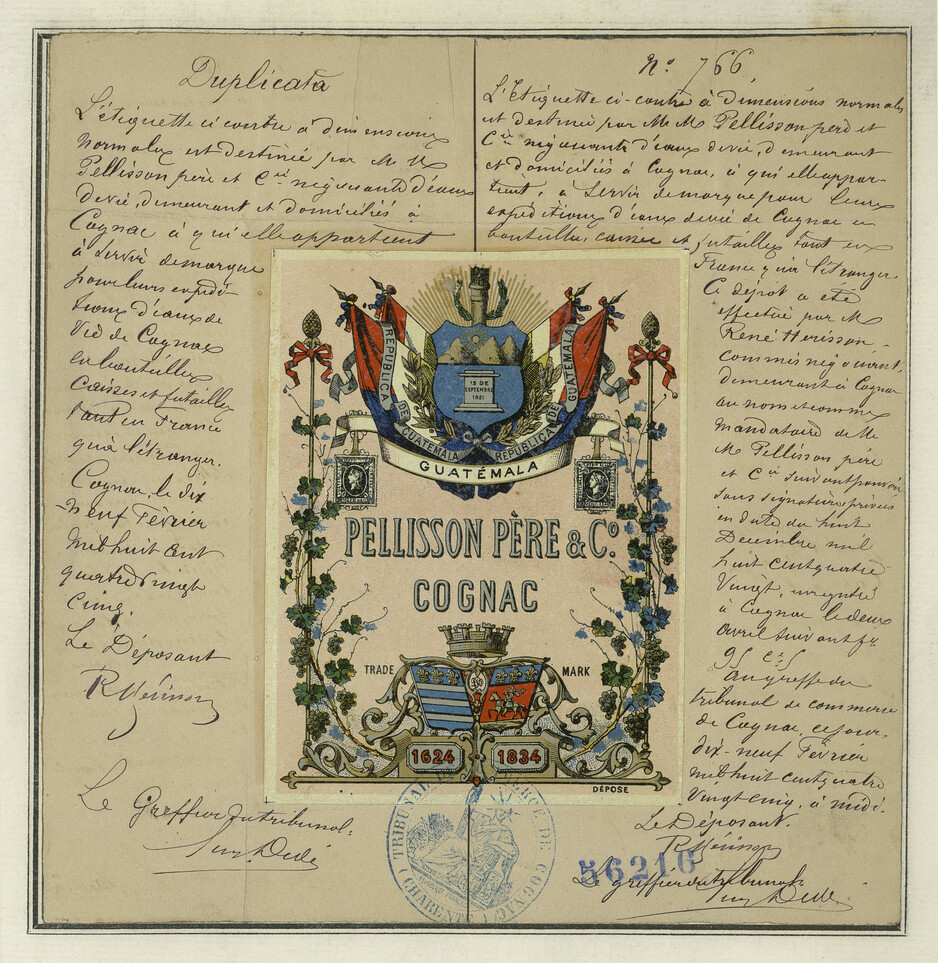 Duplicata
L'étiquette ci contre à dimensions
normales est destinée par M M
Pellisson père et Cie négociants d'eaux
devie, demeurant et domiciliés à
Cognac à qui elle appartient
à servir demarque
pour leurs expédi-
tions d'eaux de
Vie de Cognac
en bouteilles,
Caisses et futailles
tant en France
qu'à l'étranger.
Cognac, le dix
neuf Février
mil huit cent
quatre vingt
cinq.
Le Déposant
R Hérisson
Le Greffier du tribunal:
Dedé
No 766,
L'Etiquette ci-contre à dimensions normales
est destinée par M M Pellisson père et
Cie négociants d'eaux devie, demeurant
et domiciliés à Cognac, à qui elle appar-
tient, à servir demarque pour leurs
expéditions d'eaux devie de Cognac en
bouteilles, caisses et futailles tant en
France qu'à l'étranger.
Ce dépot a été
effectué par M
René Hérisson
commis négociant,
demeurant à Cognac
au nom et comme
mandataire de M
M Pellisson père
et Cie suivant pouvoir
sous signatures privées
en date du huit
Décembre mil
huit cent quatre
Vingt, enregistré
à Cognac le deux
avril suivant fo
95 cs 5
au greffe du
tribunal de commerce
de Cognac, ce jour
dix-neuf Février
mil huit cent quatre
Vingt cinq, à midi.
Le Déposant.
R Hérisson
Le greffier du tribunal:
Dedé
REPUBLICA DE GUATEMALA
REPUBLICA DE GUATEMALA
15 DE
SEPTEMBRE
1821
GUATÉMALA
PELLISSON PÈRE & Co.
COGNAC
TRADE MARK
1624 1834
DÉPOSÉ
TRIBUNAL DE COMMERCE DE COGNAC
(CHARENTE)
56216